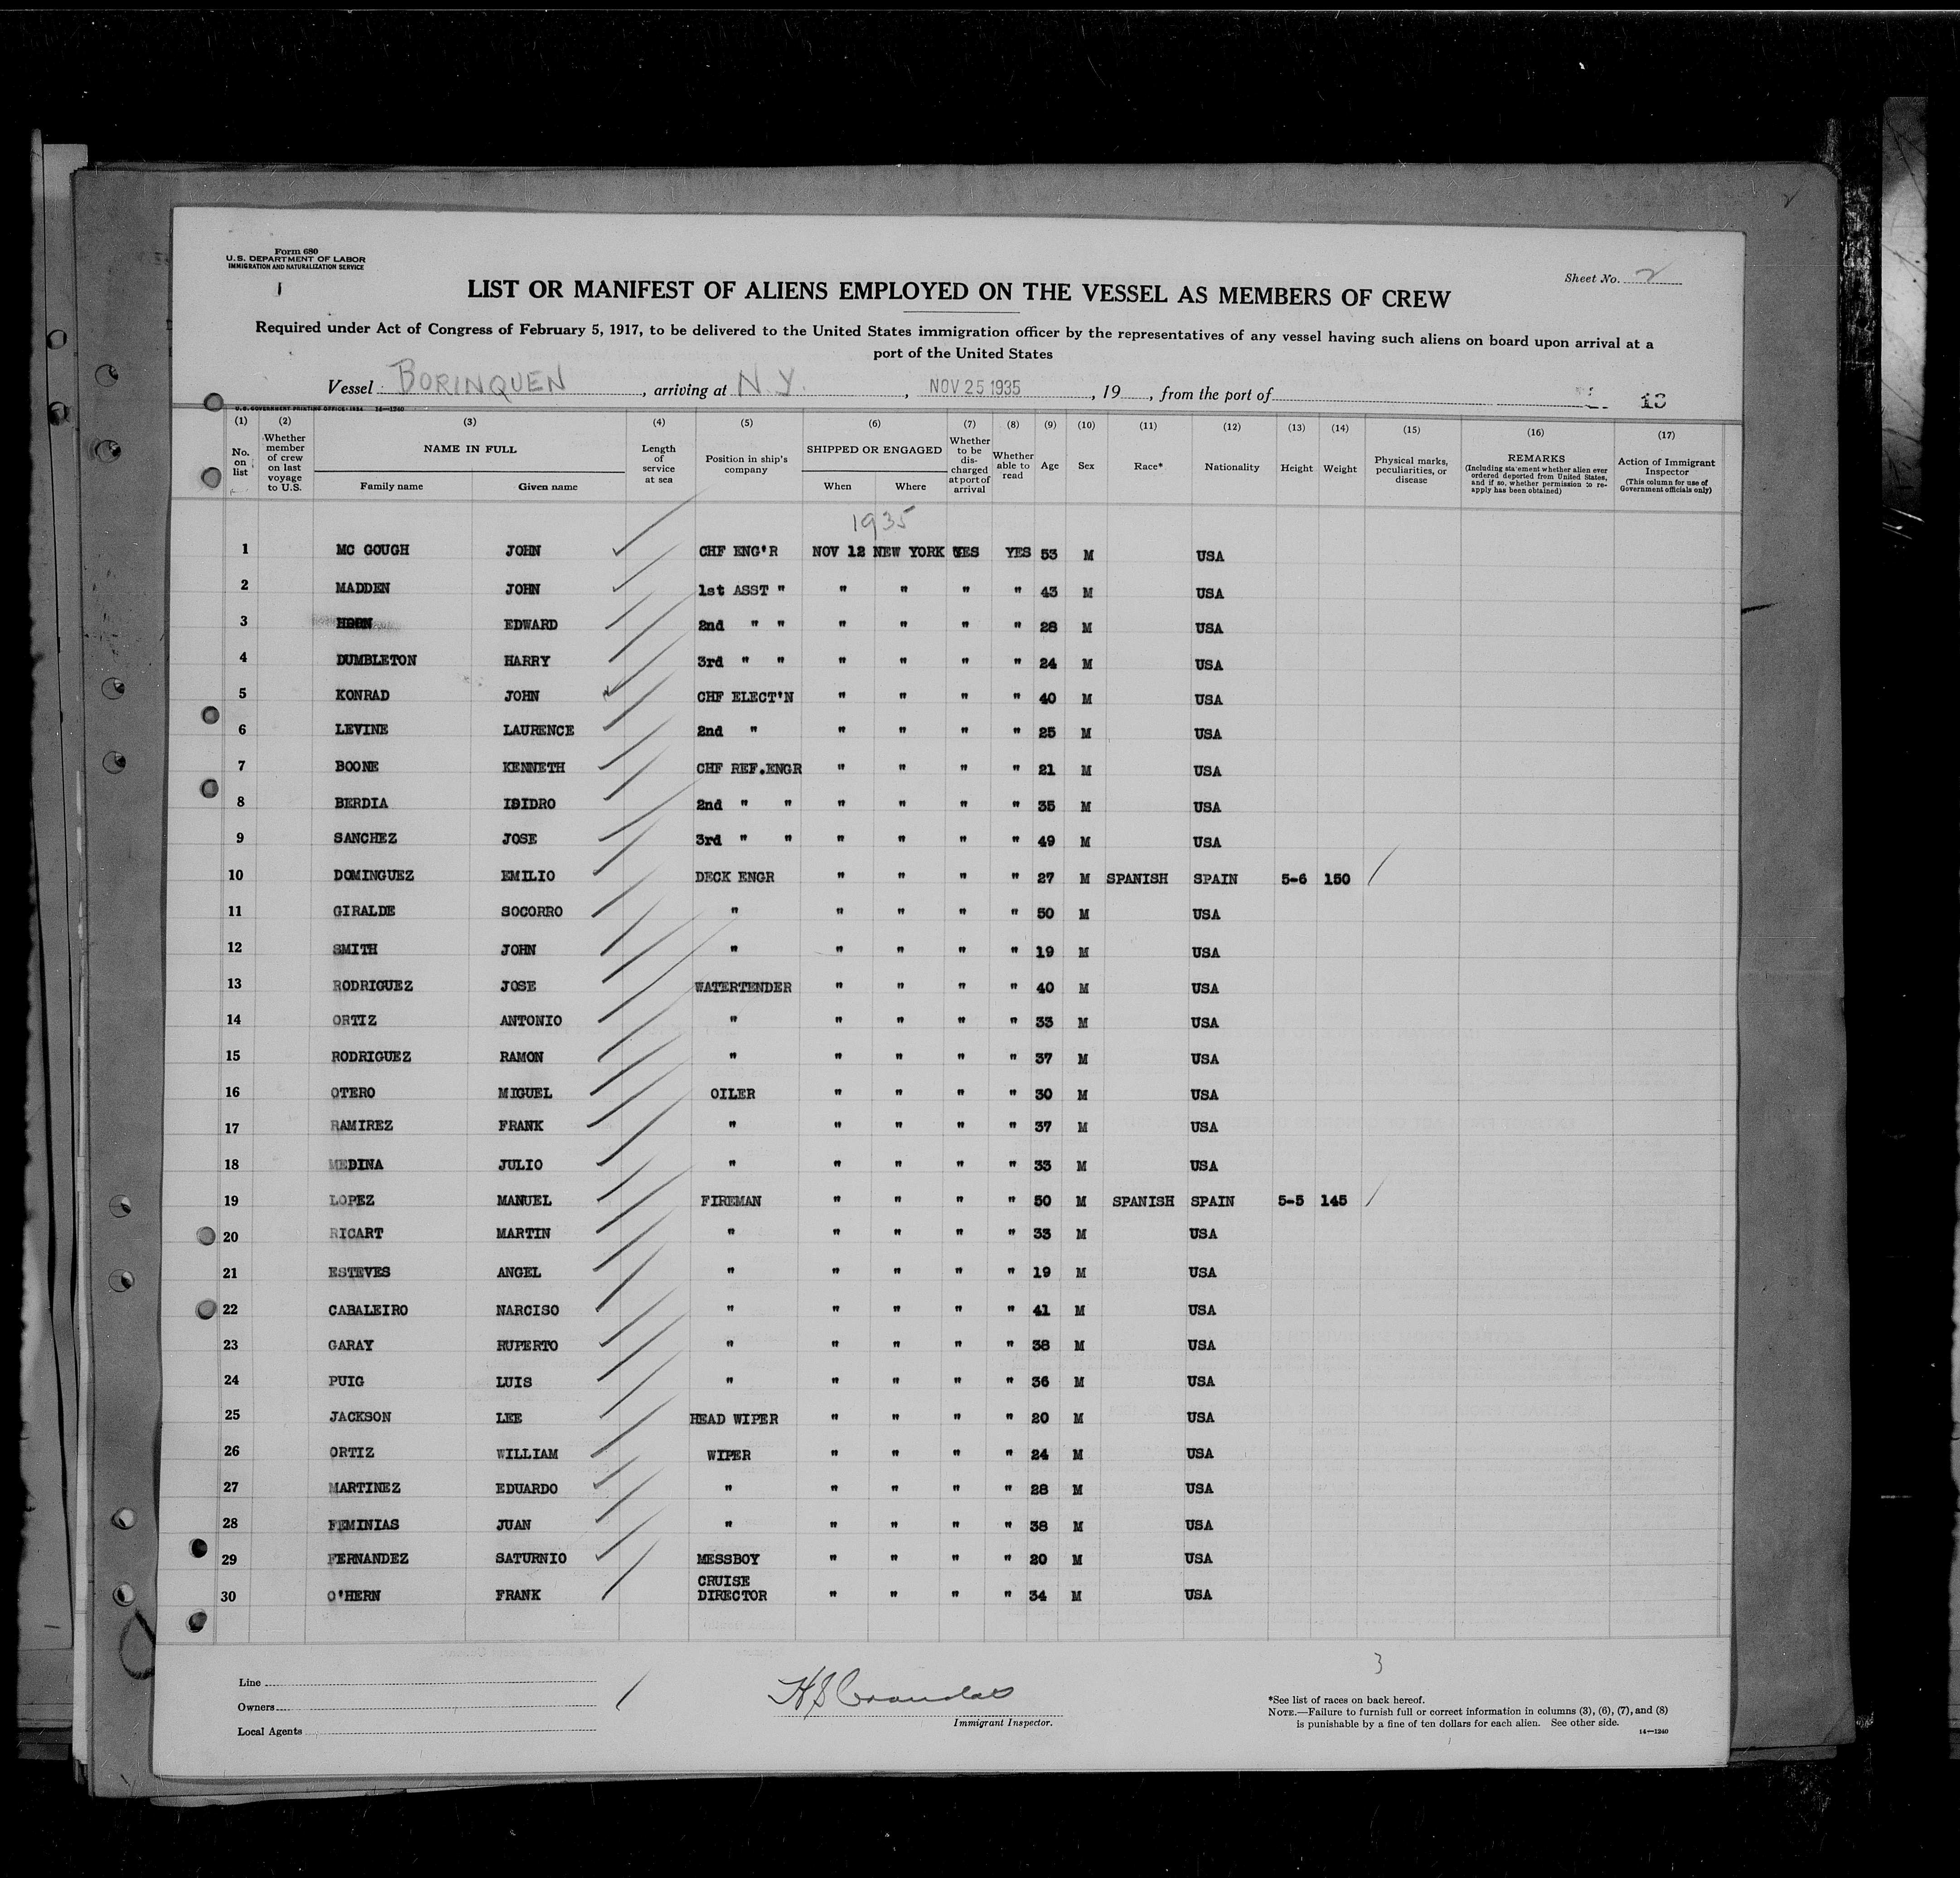 Form 680
U.S. DEPARTMENT OF LABOR
IMMIGRATION AND NATURALIZATION SERVICE
Sheet No. 2
LIST OR MANIFEST OF ALIENS EMPLOYED ON THE VESSEL AS MEMBERS OF CREW
Required under Act of Congress of February 5, 1917, to be delivered to the United States immigration officer by the representatives of any vessel having such aliens on board upon arrival at a
port of the United States
Vessel BORINQUEN, arriving at N.Y., NOV 25 1935, 19, from the port of
U.S. GOVERNMENT PRINTING OFFICE: 1934 14—1240
(1) (2) (3) (4) (5) (6) (7) (8) (9) (10) (11) (12) (13) (14) (15) (16) (17)
No. on list
Whether member of crew on last voyage to U.S.
NAME IN FULL
Family name Given name
Length of service at sea
Position in ship's company
SHIPPED OR ENGAGED
When Where
Whether to be discharged at port of arrival
Whether able to read
Age Sex Race* Nationality Height Weight
Physical marks, peculiarities, or disease
REMARKS
(Including statement whether alien ever ordered deported from United States, and if so, whether permission to re-apply has been obtained)
Action of Immigrant Inspector
(This column for use of Government officials only)
1935
1 MC GOUGH JOHN CHF ENG'R NOV 12 NEW YORK YES YES 53 M USA
2 MADDEN JOHN 1st ASST " " " " " 43 M USA
3 EDWARD 2nd " " " " " " 28 M USA
4 DUMBLETON HARRY 3rd " " " " " " 24 M USA
5 KONRAD JOHN CHF ELECT'N " " " " 40 M USA
6 LEVINE LAURENCE 2nd " " " " " 25 M USA
7 BOONE KENNETH CHF REF.ENGR " " " " 21 M USA
8 BERDIA ISIDRO 2nd " " " " " " 35 M USA
9 SANCHEZ JOSE 3rd " " " " " " 49 M USA
10 DOMINGUEZ EMILIO DECK ENGR " " " " 27 M SPANISH SPAIN 5-6 150
11 GIRALDE SOCORRO " " " " " 50 M USA
12 SMITH JOHN " " " " " 19 M USA
13 RODRIGUEZ JOSE WATERTENDER " " " " 40 M USA
14 ORTIZ ANTONIO " " " " " 33 M USA
15 RODRIGUEZ RAMON " " " " " 37 M USA
16 OTERO MIGUEL OILER " " " " 30 M USA
17 RAMIREZ FRANK " " " " " 37 M USA
18 MEDINA JULIO " " " " " 33 M USA
19 LOPEZ MANUEL FIREMAN " " " " 50 M SPANISH SPAIN 5-5 145
20 RICART MARTIN " " " " " 33 M USA
21 ESTEVES ANGEL " " " " " 19 M USA
22 CABALEIRO NARCISO " " " " " 41 M USA
23 GARAY RUPERTO " " " " " 38 M USA
24 PUIG LUIS " " " " " 36 M USA
25 JACKSON LEE HEAD WIPER " " " " 20 M USA
26 ORTIZ WILLIAM WIPER " " " " 24 M USA
27 MARTINEZ EDUARDO " " " " " 28 M USA
28 FEMINIAS JUAN " " " " " 38 M USA
29 FERNANDEZ SATURNIO MESSBOY " " " " 20 M USA
30 O'HERN FRANK CRUISE DIRECTOR " " " " 34 M USA
3
Line
Owners
Local Agents
Immigrant Inspector.
*See list of races on back hereof.
NOTE.—Failure to furnish full or correct information in columns (3), (6), (7), and (8)
is punishable by a fine of ten dollars for each alien. See other side.
14—1240